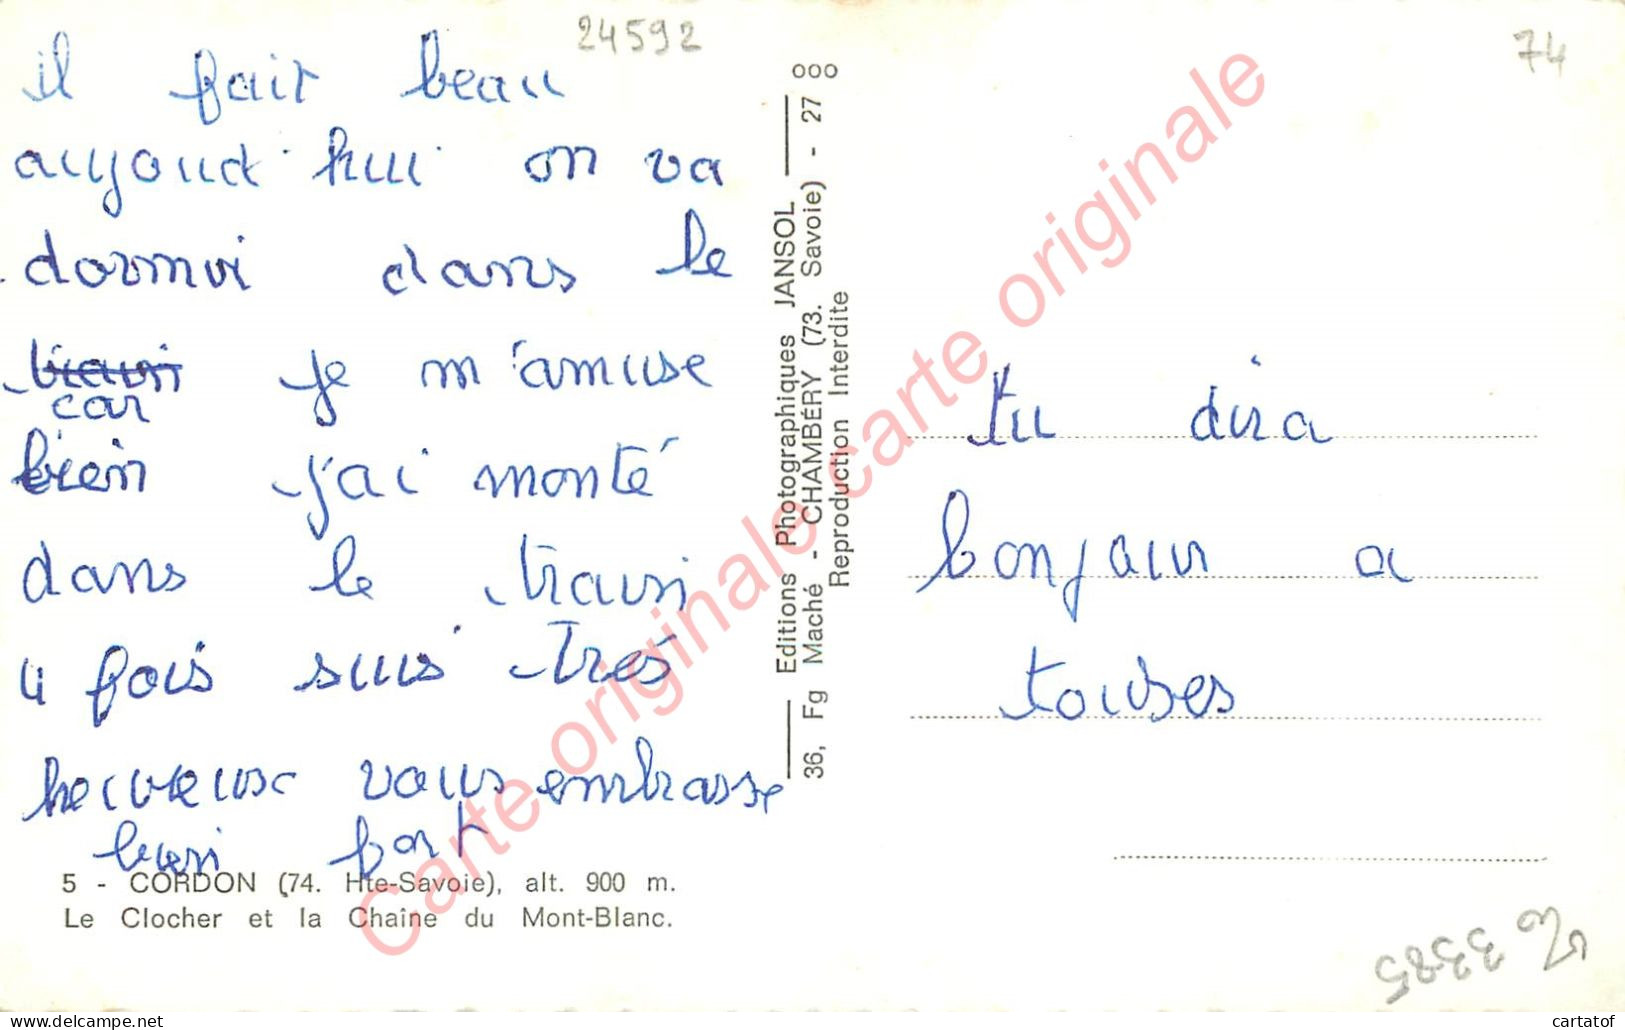 24592
74
il fait beau
aujourd'hui on va
dormir dans le
train je m'amuse
car
bien j'ai monté
dans le train
4 fois suis très
heureuse vous embrasse
bien fort
5 - CORDON (74. Hte-Savoie), alt. 900 m.
Le Clocher et la Chaîne du Mont-Blanc.
Editions Photographiques JANSOL
36, Fg Maché - CHAMBÉRY (73. Savoie) - 27 000
Reproduction Interdite
tu dira
bonjour a
toutses
3385
Carte originale carte originale
cartatof